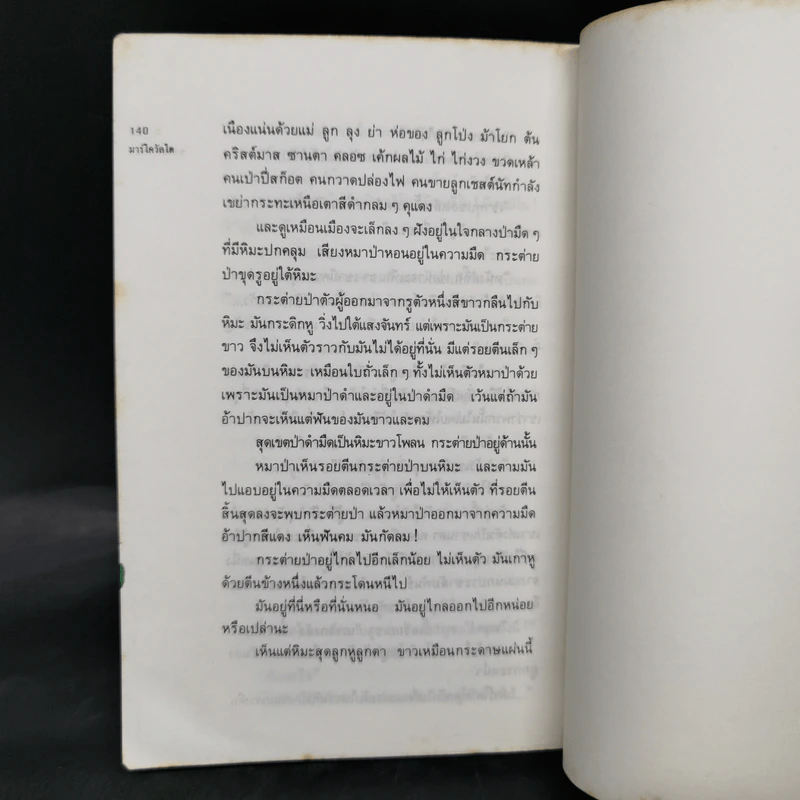 140
มาร์โควัลโด
เนืองแน่นด้วยแม่ ลูก ลุง ย่า ห่อของ ลูกโป่ง ม้าโยก ต้น
คริสต์มาส ซานตา คลอซ เค้กผลไม้ ไก่ ไก่งวง ขวดเหล้า
คนเป่าปี่สก็อต คนกวาดปล่องไฟ คนขายลูกเชสต์นัทกำลัง
เขย่ากระทะเหนือเตาสีดำกลม ๆ คุแดง
และดูเหมือนเมืองจะเล็กลง ๆ ฝังอยู่ในใจกลางป่ามืด ๆ
ที่มีหิมะปกคลุม เสียงหมาป่าหอนอยู่ในความมืด กระต่าย
ป่าขุดรูอยู่ใต้หิมะ
กระต่ายป่าตัวผู้ออกมาจากรูตัวหนึ่งสีขาวกลืนไปกับ
หิมะ มันกระดิกหู วิ่งไปใต้แสงจันทร์ แต่เพราะมันเป็นกระต่าย
ขาว จึงไม่เห็นตัวราวกับมันไม่ได้อยู่ที่นั่น มีแต่รอยตีนเล็ก ๆ
ของมันบนหิมะ เหมือนใบถั่วเล็ก ๆ ทั้งไม่เห็นตัวหมาป่าด้วย
เพราะมันเป็นหมาป่าดำและอยู่ในป่าดำมืด เว้นแต่ถ้ามัน
อ้าปากจะเห็นแต่ฟันของมันขาวและคม
สุดเขตป่าดำมืดเป็นหิมะขาวโพลน กระต่ายป่าอยู่ด้านนั้น
หมาป่าเห็นรอยตีนกระต่ายป่าบนหิมะ และตามมัน
ไปแอบอยู่ในความมืดตลอดเวลา เพื่อไม่ให้เห็นตัว ที่รอยตีน
สิ้นสุดลงจะพบกระต่ายป่า แล้วหมาป่าออกมาจากความมืด
อ้าปากสีแดง เห็นฟันคม มันกัดลม !
กระต่ายป่าอยู่ไกลไปอีกเล็กน้อย ไม่เห็นตัว มันเกาหู
ด้วยตีนข้างหนึ่งแล้วกระโดนหนีไป
มันอยู่ที่นี่หรือที่นั่นหนอ มันอยู่ไกลออกไปอีกหน่อย
หรือเปล่านะ
เห็นแต่หิมะสุดลูกหูลูกตา ขาวเหมือนกระดาษแผ่นนี้